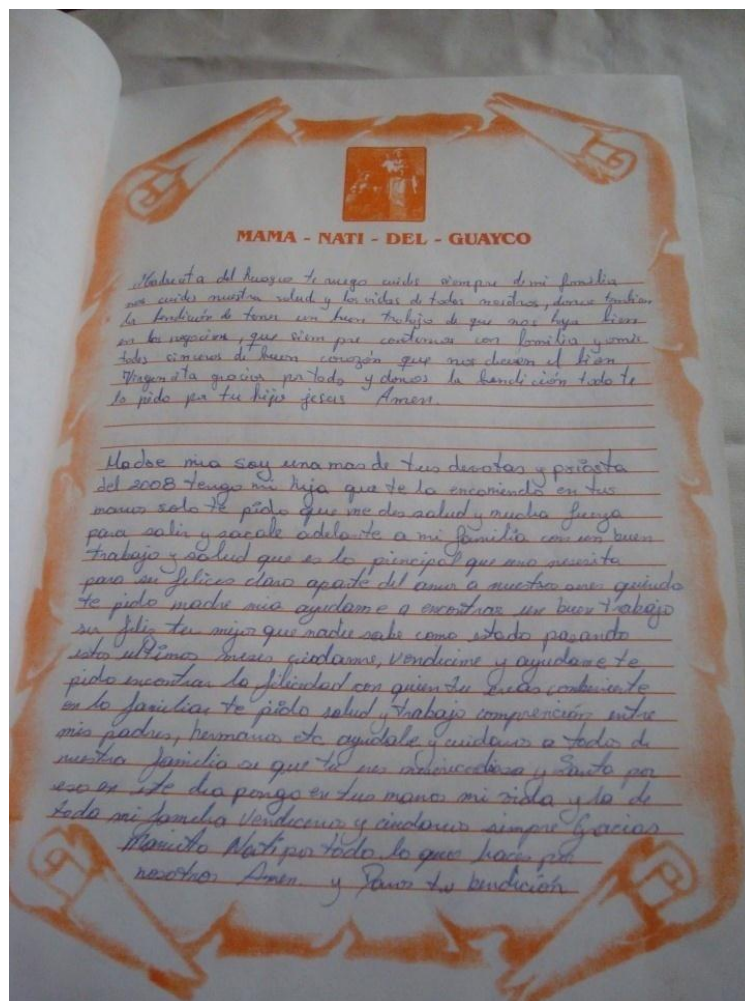 MAMA - NATI - DEL - GUAYCO
Madrecita del huayco te ruego cuides siempre de mi familia
nos cuides nuestra salud y las vidas de todos nosotros, danos tambien
la bendición de tener un buen trabajo de que nos baya bien
en los negocios, que siempre contemos con familia y amis
tades sinceros de buen corazón que nos deseen el bien
Virgencita gracias por todo y danos la bendición todo te
lo pido por tu hijo jesus Amen.
Madre mia soy una mas de tus devotas y priosta
del 2008 tengo mi hija que te la encomiendo en tus
manos solo te pido que me des salud y mucha fuerza
para salir y sacale adelante a mi familia con un buen
trabajo y salud que es lo principal que uno necesita
para ser felices claro aparte del amor a nuestro ser querido
te pido madre mia ayudame a encontrar un buen trabajo
ser feliz tu mejor que nadie sabe como estado pasando
estos ultimos meses cuidanme, vendicime y ayudame te
pido encontrar la felicidad con quien tu creas conbeniente
en lo familiar te pido salud y trabajo comprención entre
mis padres, hermanos etc ayudale y cuidanos a todos de
nuestra familia se que tu eres misericodiosa y Santa por
eso en este dia pongo en tus manos mi vida y la de
toda mi familia vendicenos y cuidanos siempre Gracias
Mamita Nati por todo lo que haces por
nosotros Amen. y Danos tu bendición